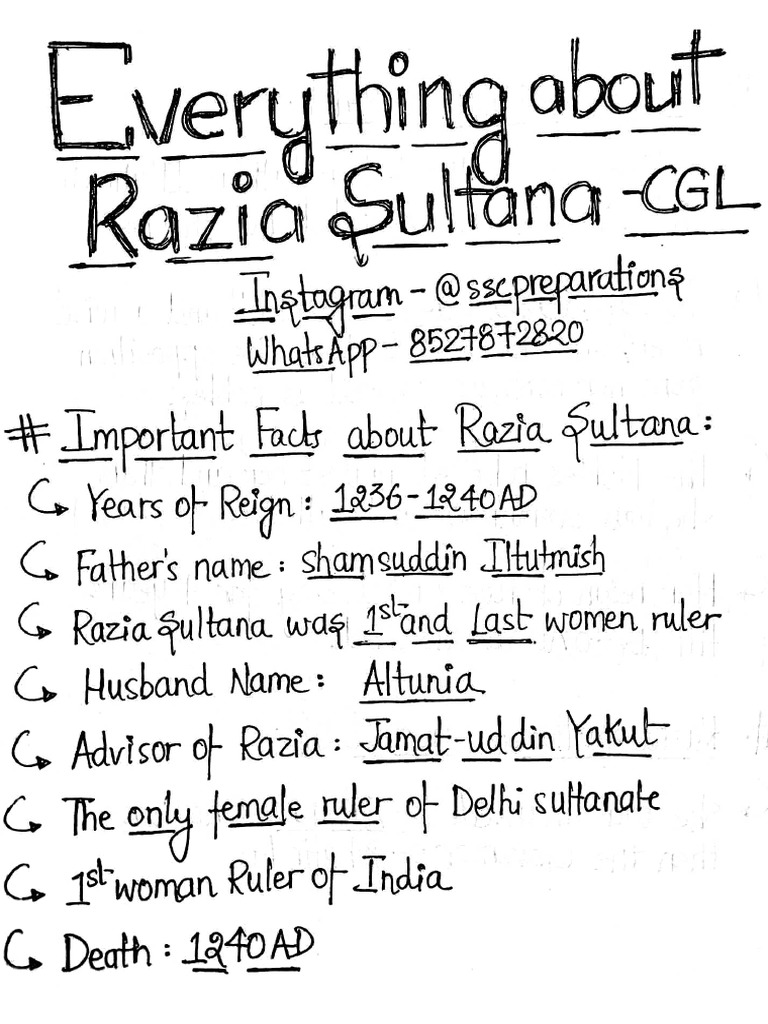 Everything about
Razia Sultana -CGL
Instagram - @sscpreparations
WhatsApp - 8527872820
# Important Facts about Razia Sultana:
Years of Reign: 1236-1240AD
Father's name: Shamsuddin Iltutmish
Razia Sultana was 1st and Last women ruler
Husband Name: Altunia
Advisor of Razia: Jamat-uddin Yakut
The only female ruler of Delhi sultanate
1st woman Ruler of India
Death: 1240AD